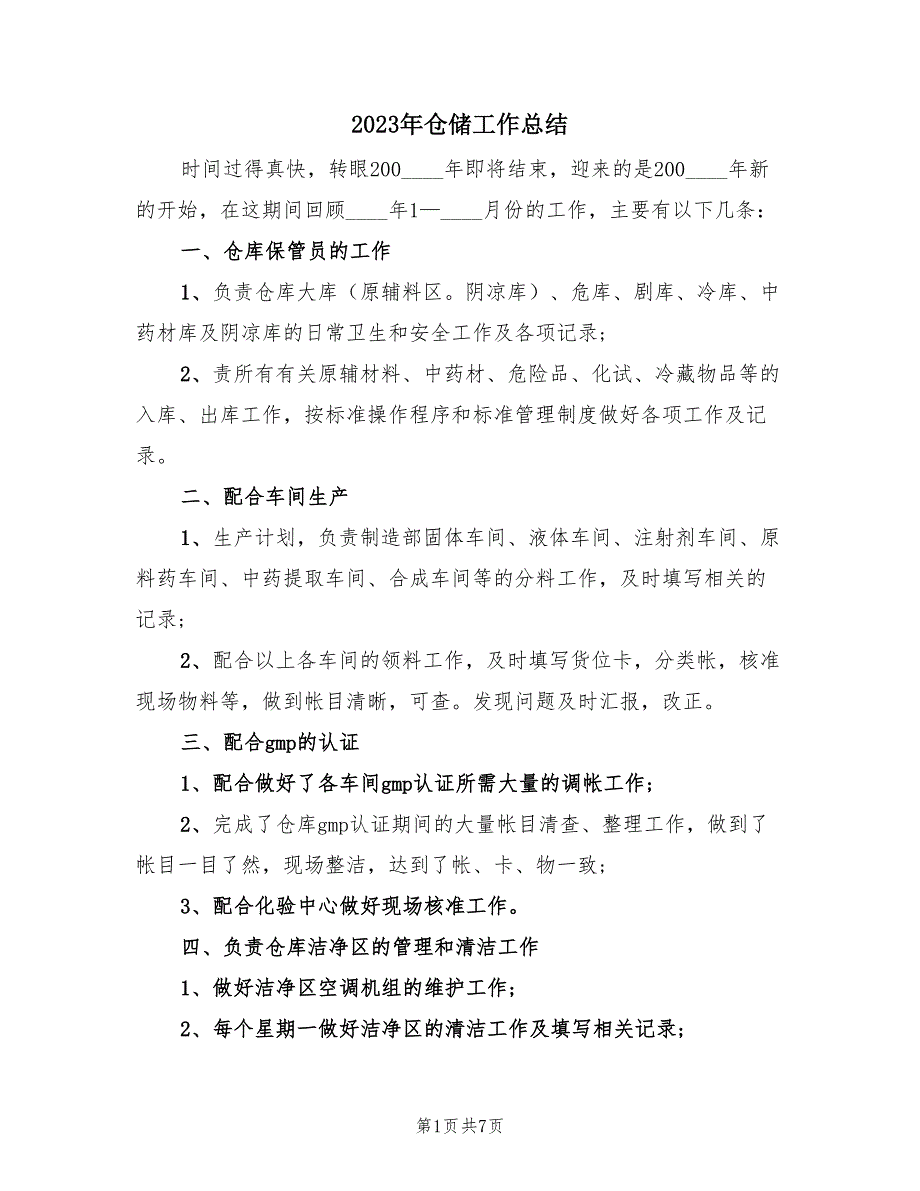 2023年仓储工作总结
时间过得真快，转眼200____年即将结束，迎来的是200____年新
的开始，在这期间回顾____年1—____月份的工作，主要有以下几条：
一、仓库保管员的工作
1、负责仓库大库（原辅料区。阴凉库）、危库、剧库、冷库、中
药材库及阴凉库的日常卫生和安全工作及各项记录;
2、责所有有关原辅材料、中药材、危险品、化试、冷藏物品等的
入库、出库工作，按标准操作程序和标准管理制度做好各项工作及记
录。
二、配合车间生产
1、生产计划，负责制造部固体车间、液体车间、注射剂车间、原
料药车间、中药提取车间、合成车间等的分料工作，及时填写相关的
记录;
2、配合以上各车间的领料工作，及时填写货位卡，分类帐，核准
现场物料等，做到帐目清晰，可查。发现问题及时汇报，改正。
三、配合gmp的认证
1、配合做好了各车间gmp认证所需大量的调帐工作;
2、完成了仓库gmp认证期间的大量帐目清查、整理工作，做到了
帐目一目了然，现场整洁，达到了帐、卡、物一致;
3、配合化验中心做好现场核准工作。
四、负责仓库洁净区的管理和清洁工作
1、做好洁净区空调机组的维护工作;
2、每个星期一做好洁净区的清洁工作及填写相关记录;
第1页共7页